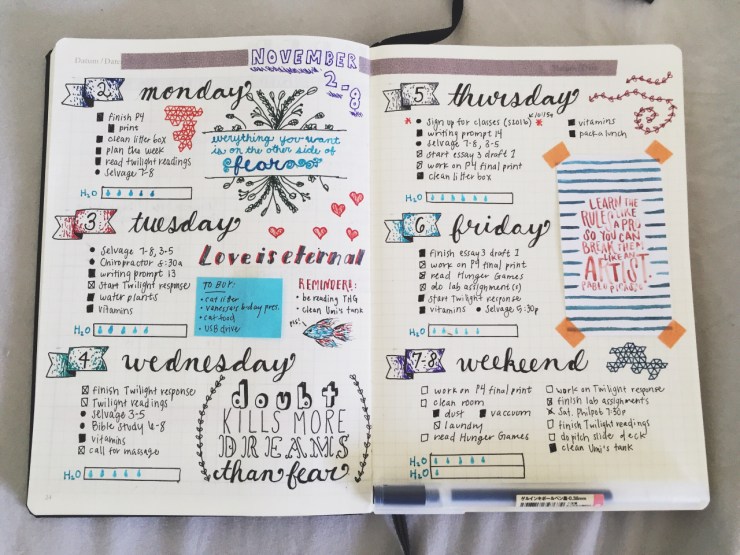 NOVEMBER
2-8
2 monday
finish P4
print
clean litter box
plan the week
read twilight readings
Selvage 7-8
H2O
everything you want
is on the other side of
fear
3 tuesday
Selvage 7-8, 3-5
Chiropractor 5:30a
writing prompt 13
Start Twilight response
water plants
Vitamins
H2O
Love is eternal
TO BUY:
cat litter
vanessa's bday pres.
cat food
USB drive
REMINDER!:
be reading THG
clean Umi's tank
4 wednesday
finish Twilight response
Twilight readings
Selvage 3-5
Bible Study 6-8
vitamins
call for massage
H2O
doubt
KILLS MORE
DREAMS
than fear
5 thursday
sign up for classes
writing prompt 14
Selvage 7-8, 3-5
start essay 3 draft 1
work on P4 final print
clean litter box
vitamins
pack a lunch
H2O
LEARN THE
RULES LIKE
A PRO
SO YOU CAN
BREAK THEM
LIKE AN
ARTIST.
PABLO PICASSO
6 friday
finish essay 3 draft 1
work on P4 final print
read Hunger Games
do lab assignment(s)
start Twilight response
vitamins
Selvage 5:30p
H2O
7-8 weekend
work on P4 final print
clean room
dust
vaccuum
laundry
read Hunger Games
work on Twilight response
finish lab assignments
Sat. Philpot 7:30p
finish Twilight readings
do pitch slider deck
clean Umi's tank
H2O
H2O